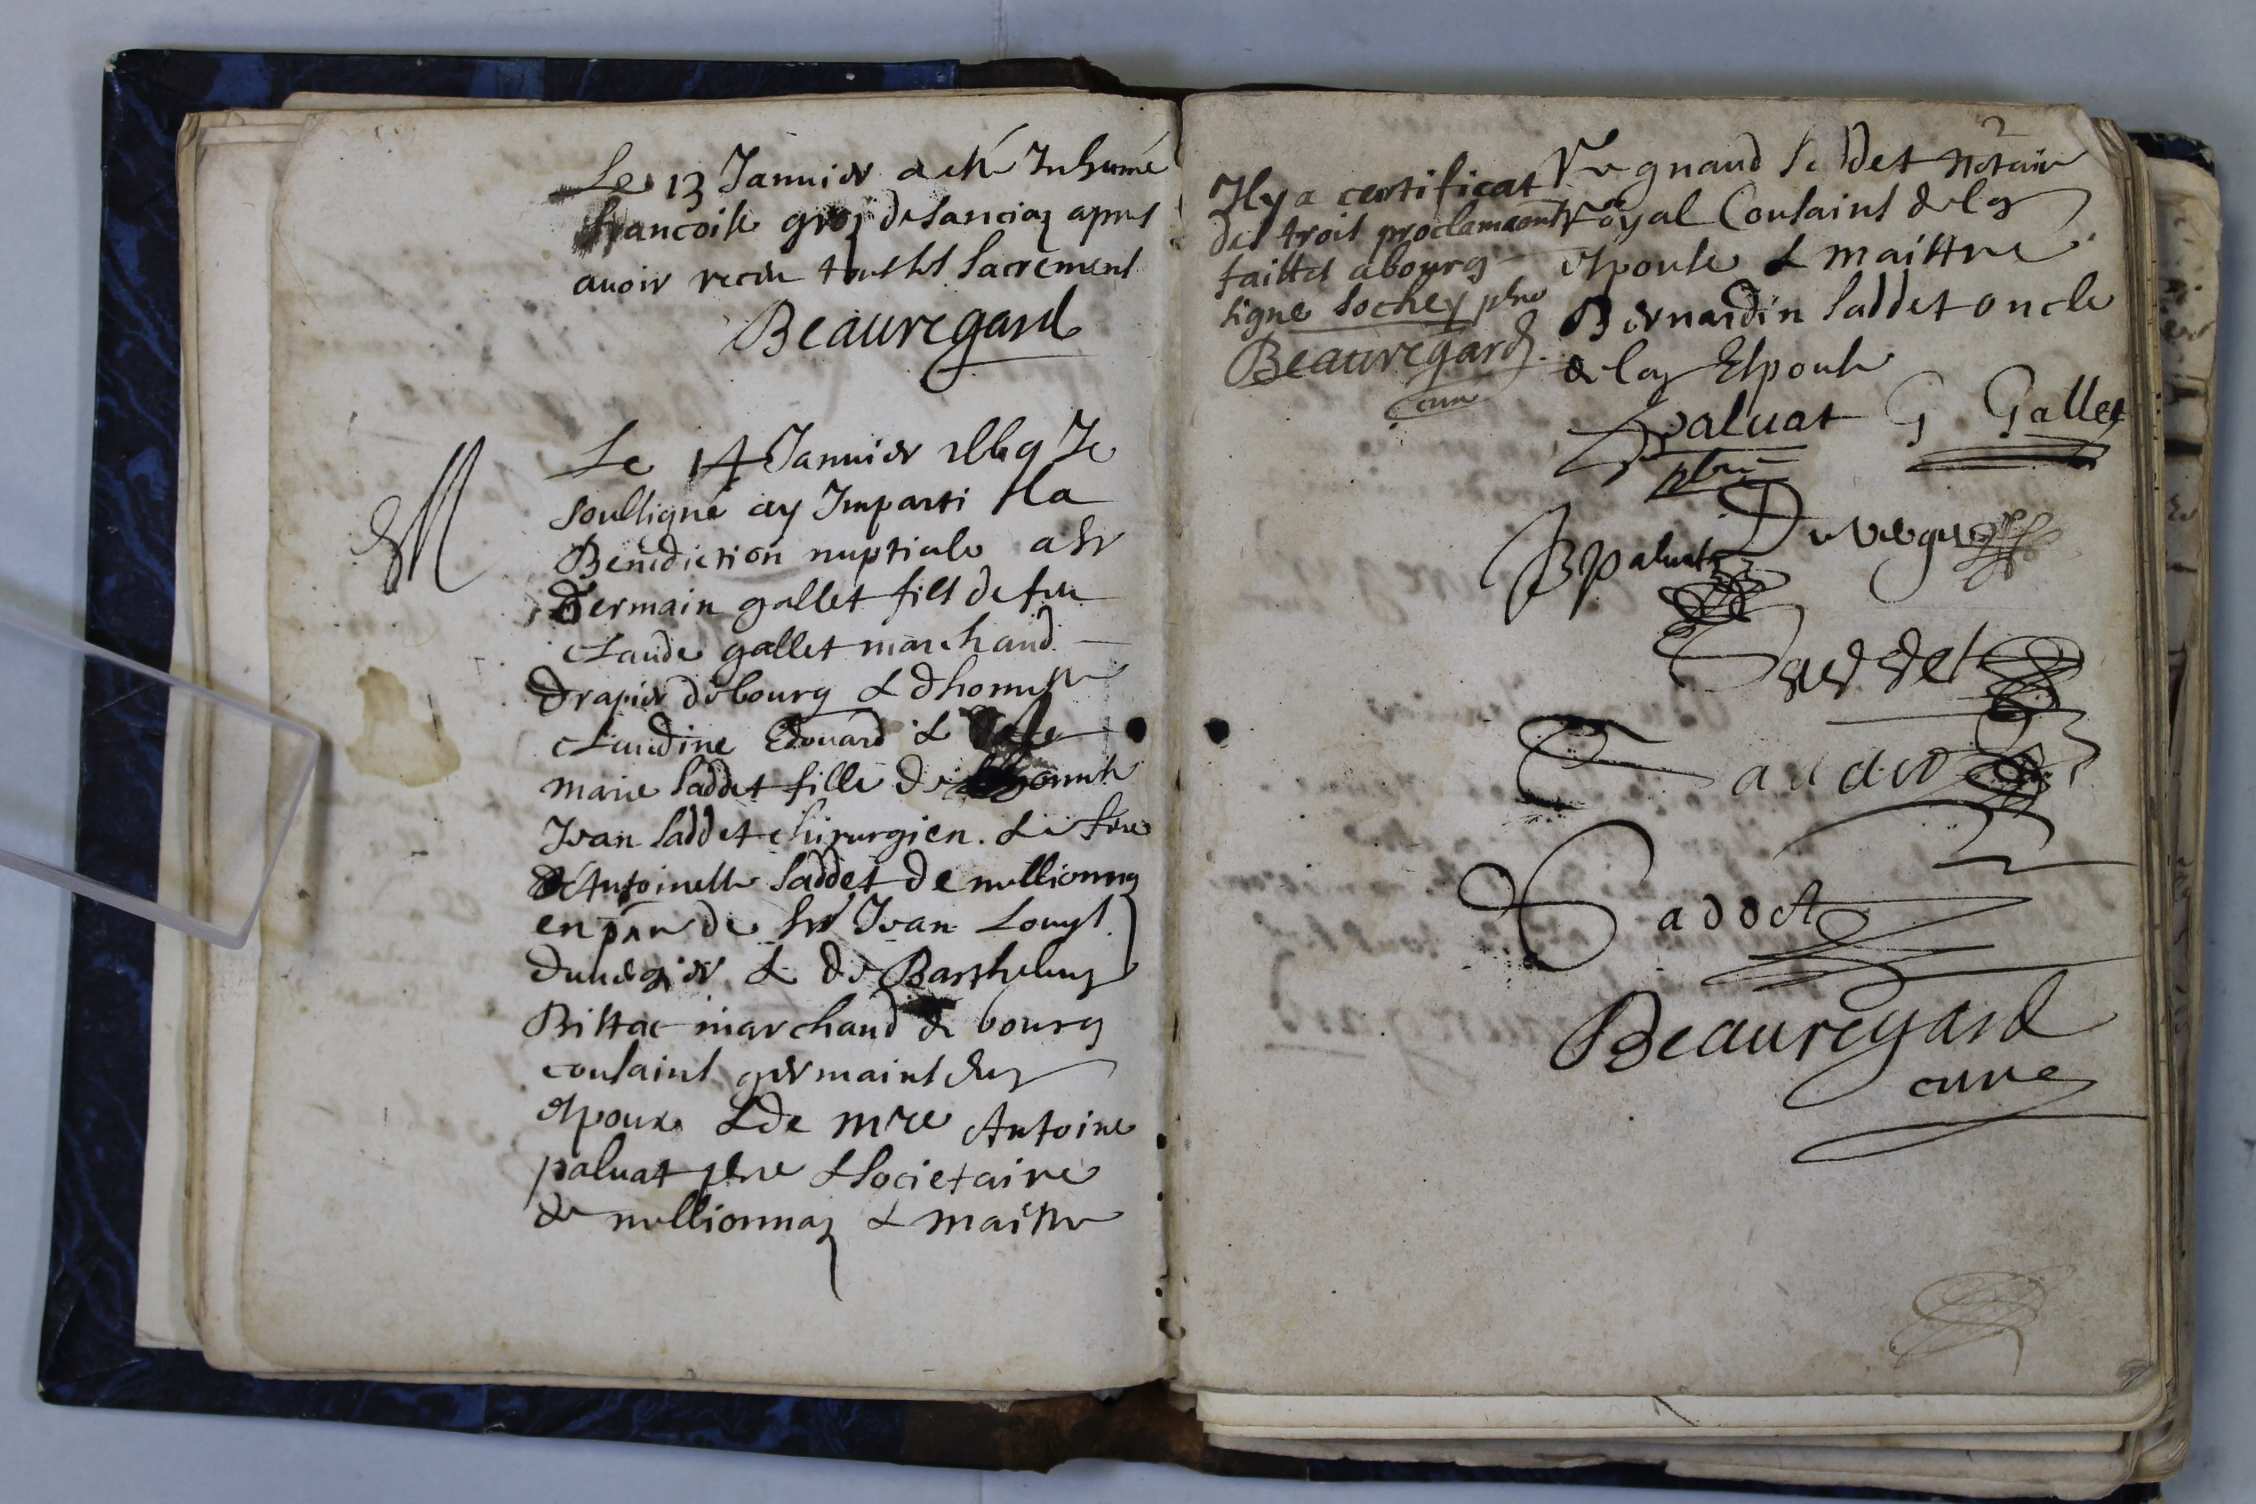 Le 13 Januier a esté Inhumé
francoise groz de sanciaz apres
auoir receu tous les sacrements
Beauregard
M
Le 14 Januier 1669 Je
soussigné ay Imparti sla
Benediction nuptiale a sr
Germain gallet fils de feu
claude gallet marchand
drapier de bourg & dhonneste
claudine Edouard &
marie saddet fille de honneste
Jean saddet chirurgien . & de feue
Antoinette saddet de meillionnaz
en pnce de sr Jean Louys
duuergier & de Barthelemy
Bistac marchand de bourg
cousains germains duz
espoux & de mre Antoine
paluat pbre & societaire
de meillionnaz & maistre
Il y a certificat
des trois proclamaons
faittes a bourg
signe sochey pbre
Beauregard
cure
Regnaud saddet Notaire
Royal Cousains de laz
espouse & maistre
Bernardin saddet oncle
de laz Espouse
Paluat G Gallet
pbre
B paluat Duuergier
Saddet
Saddet
Saddet
Beauregard
cure